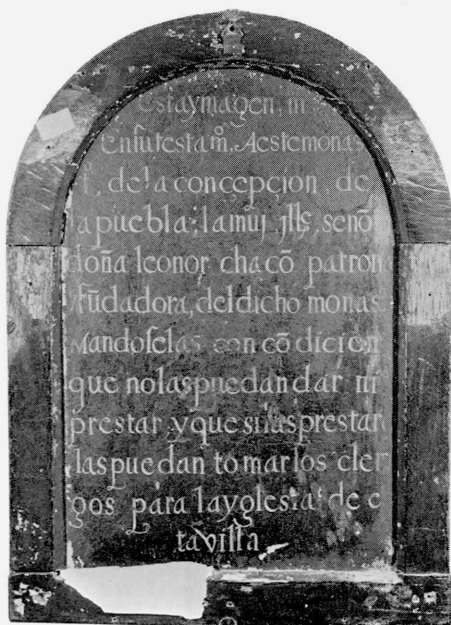 Esta ymagen, m
en su testam̊. A este mona
, de la conçepçion, de
la puebla; la muj jll̃s, señõ
doña leonor chacõ patron
y fũdadora, del dicho monas
Mandoselas con cõ dicion
que no las puedan dar ni
prestar y que si las prestar
las puedan tomar los cler
gos para la yglesia de e
ta villa